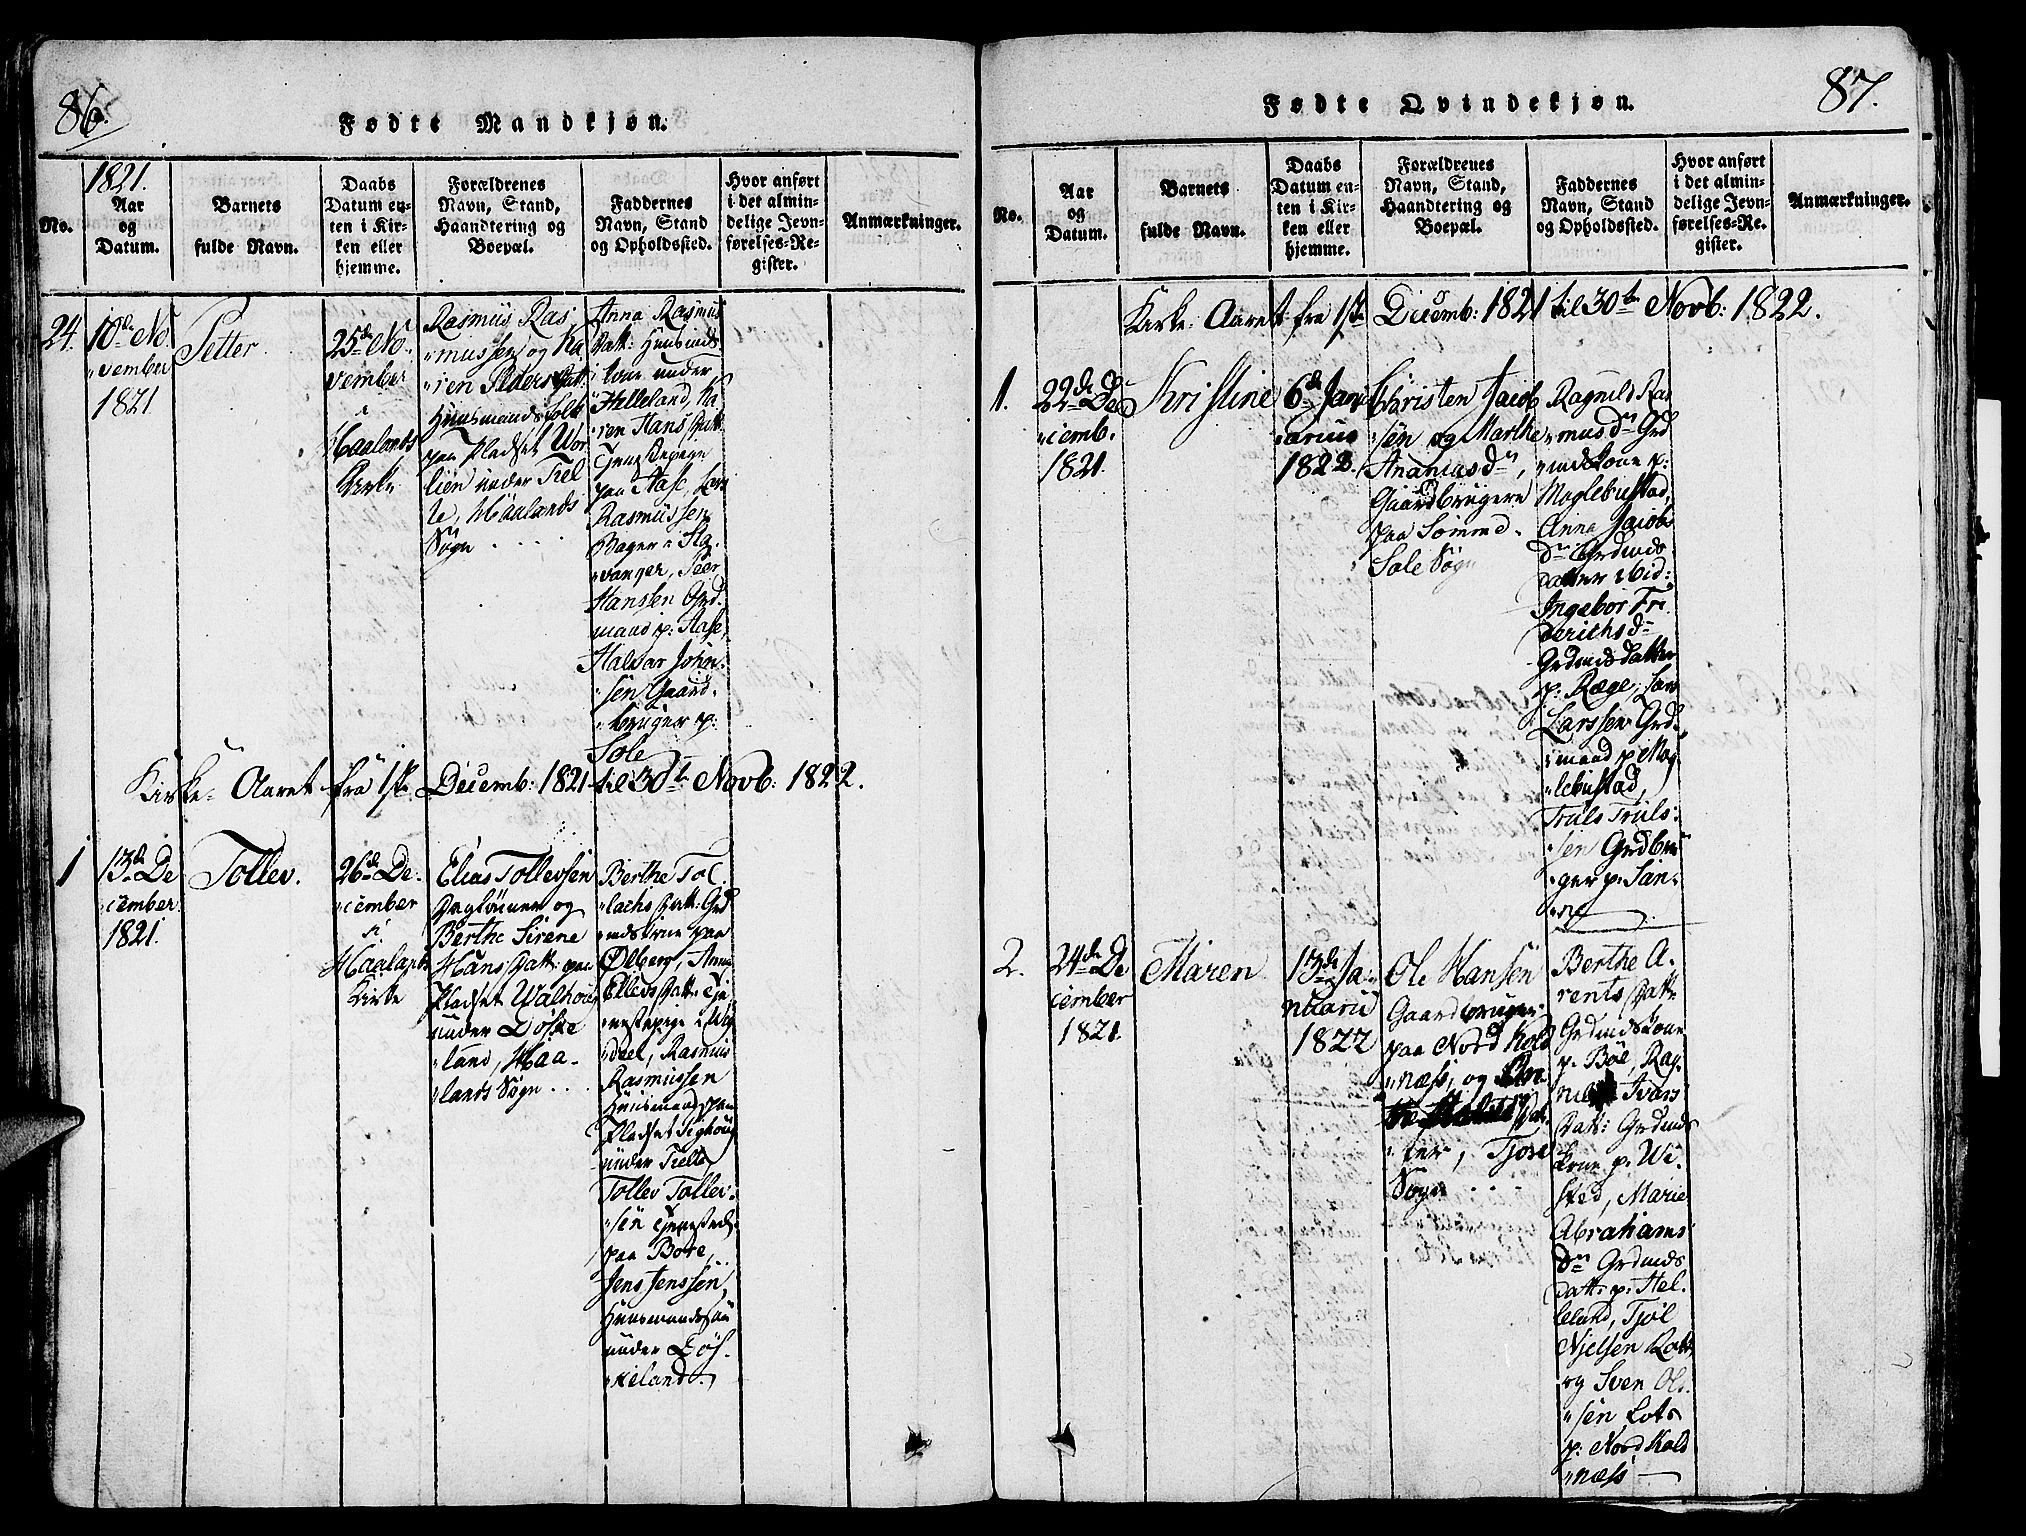 86.
Fødte Mandkjøn.
1821.
No.
Aar
og
Datum.
Barnets
fulde Navn.
Daabs
Datum en-
ten i Kir-
ken eller
hjemme.
Forældrenes
Navn, Stand,
Haandtering og
Boepæl.
Faddernes
Navn, Stand
og Opholdssted.
Hvor anført
i det almin-
delige Jevn-
førelses-Re-
gister.
Anmærkninger.
24.
10de No
vember
1821
Petter
25de No
vember
i
Haalands
Kirke
Rasmus Ras
mussen og Ka
ren Peders Datt:
Huusmands Folk
paa Pladset Wor
lien under Tiel
te, Haalands
Sogn
Anna Rasmus
Datt: Huusmds
kone under
Helleland, Ka
ren Hans Datt:
Tjenestepige
paa Aase, Lars
Rasmussen
Bager i Sta
vanger, Peer
Hansen Grd
mand p: Aase,
Halvar John
sen Gaard
bruger p:
Sole
Kirke-Aaret fra 1ste Decemb: 1821 til 30te Novb: 1822.
1
13de De
cember
1821.
Tollev.
26de De
cember
i
Haalands
Kirke
Elias Tollevsen
Dagløner og
Berthe Sirene
Hans Datt: paa
Pladset Walhoug
under Løsce
land, Haa
lands Sogn
Berthe Tol
lachs Datt: Grd
mds kone paa
Ølberg, Anna
Ellevs Datt: Tje
nestepige i
deel, Rasmus
Rasmussen
Huusmand paa
Pladset Sighoug
under Tielte
Tollev Tollev
sen Tjenestedr.
paa Bore,
Jens Jenssen,
Huusmandssøn
under Løs
keland.
87.
Fødte Qvindekjøn.
No.
Aar
og
Datum.
Barnets
fulde Navn.
Daabs
Datum en-
ten i Kir-
ken eller
hjemme.
Forældrenes
Navn, Stand,
Haandtering og
Boepæl.
Faddernes
Navn, Stand
og Opholdssted.
Hvor anført
i det almin-
delige Jevn-
førelses-Re-
gister.
Anmærkninger.
Kirke-Aaret fra 1ste Decemb: 1821 til 30te Novb: 1822.
1.
22de De
cemb.
1821.
Kristine
6de Janu
arius
1822.
Christen Jacob
sen og Marthe
Ananias Dr,
Gaardbrugere
paa Sømme
Sole Sogn
Ragnild Ras
mus Dr Grd
mdskone p:
Moglebustad,
Anna Jacobs
Dr Grdmds
datter ibid:
Ingebor Fri
derichs Dr
Grdmds datter
p: Ræge, Lars
Larssen Grd
mand p. Mog
lebustad,
Truls Truls
sen Grdbru
ger p: San
ne
2.
24de De
cember
1821.
Maren
13de Ja
nuarii
1822
Ole Hansen
Gaardbruger
paa Nord Kold
næss, og
ter, Tjore
Sogn
Berthe A
rents Datt:
Grdmds kone
p. Böe, Rag
Ivars
Datt: Grdmds
kone p. We
sted, Marie
Abrahams
Dr Grdmds
datt: p: Hel
leland, Tjøl
Njelsen
og Sven Ol
sen Lots
p: Nord Kold
næss